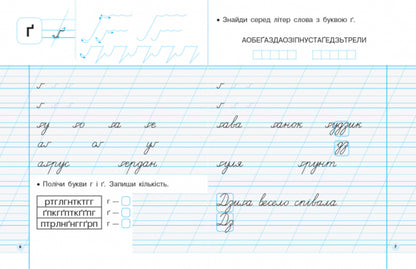 ґ ґ
ґ
ґ
ґу ґо ґа ґе
аґ оґ уґ
аґрус ґердан
• Полічи букви г і ґ. Запиши кількість.
г —
ґ —
6
• Знайди серед літер слова з буквою ґ.
ґ
ґ
ґава ґанок ґудзик
дз
ґуля ґрунт
Дзиґа весело співала.
Дз
7